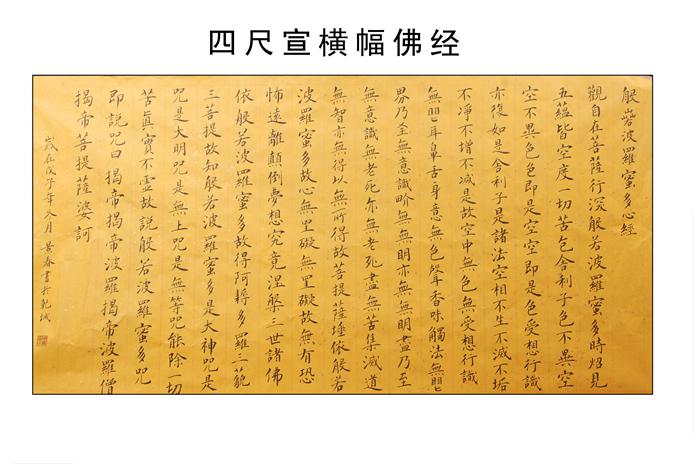 四尺宣横幅佛经
般若波羅蜜多心經
觀自在菩薩行深般若波羅蜜多時炤見
五蘊皆空度一切苦厄舍利子色不異空
空不異色色即是空空即是色受想行識
亦復如是舍利子是諸法空相不生不滅不垢
不凈不增不減是故空中無色無受想行識
無眼耳鼻舌身意無色聲香味觸法無眼
界乃至無意識界無無明亦無無明盡乃至
無意識無老死亦無老死盡無苦集滅道
無智亦無得以無所得故菩提薩埵依般若
波羅蜜多故心無罣礙無罣礙故無有恐
怖遠離顛倒夢想究竟涅槃三世諸佛
依般若波羅蜜多故得阿耨多羅三藐
三菩提故知般若波羅蜜多是大神咒是
咒是大明咒是無上咒是無等咒能除一切
苦真實不虛故説般若波羅蜜多咒
即説咒曰揭帝揭帝波羅揭帝波羅僧
揭帝菩提薩婆訶
歲在戊子年冬月景春書於乾城